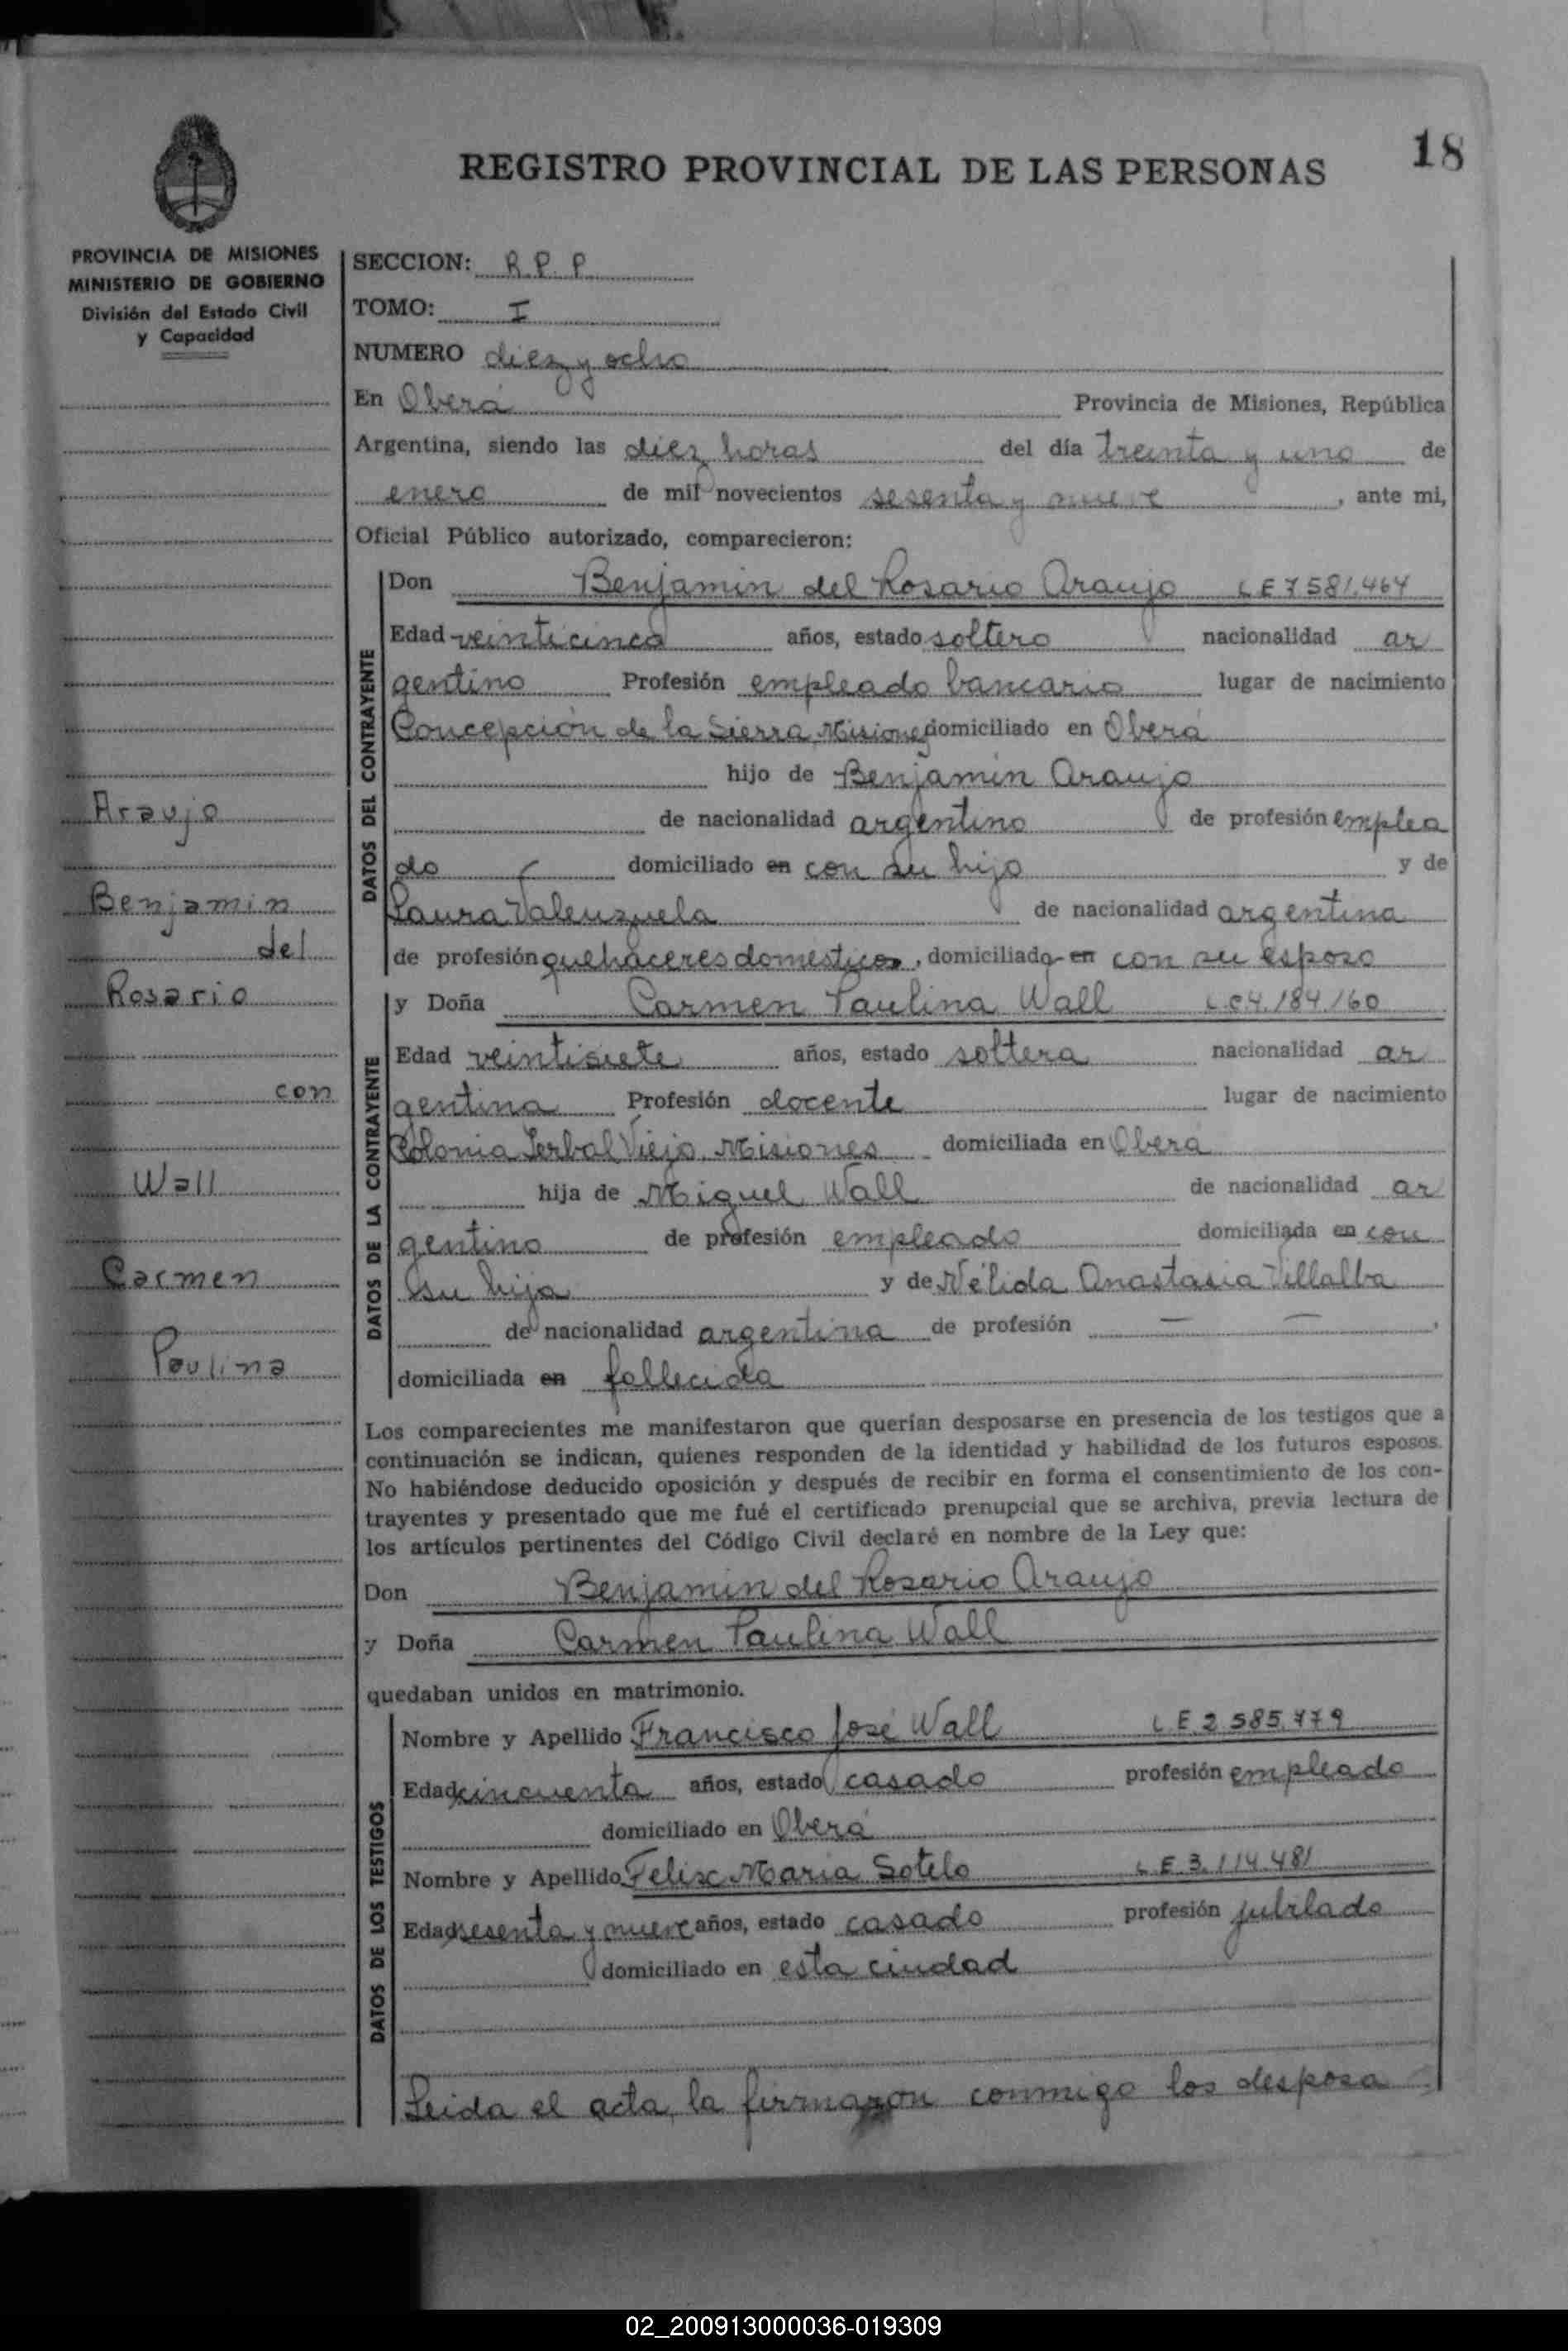 18
REGISTRO PROVINCIAL DE LAS PERSONAS
PROVINCIA DE MISIONES
MINISTERIO DE GOBIERNO
División del Estado Civil
y Capacidad
Araujo
Benjamin
del
Rosario
con
Wall
Carmen
Paulina
SECCION: R.P.P
TOMO: I
NUMERO diez y ocho
En Oberá Provincia de Misiones, República
Argentina, siendo las diez horas del día treinta y uno de
enero de mil novecientos sesenta y nueve, ante mi,
Oficial Público autorizado, comparecieron:
DATOS DEL CONTRAYENTE
Don Benjamin del Rosario Araujo LE 7581.464
Edad veinticinco años, estado soltero nacionalidad ar
gentino Profesión empleado bancario lugar de nacimiento
Concepción de la Sierra, Misiones domiciliado en Oberá
hijo de Benjamin Araujo
de nacionalidad argentino de profesión emplea
do domiciliado en con su hijo y de
Laura Valenzuela de nacionalidad argentina
de profesión quehaceres domésticos, domiciliada en con su esposo
DATOS DE LA CONTRAYENTE
y Doña Carmen Paulina Wall L.C 4.184.160
Edad veintisiete años, estado soltera nacionalidad ar
gentina Profesión docente lugar de nacimiento
Colonia Yerbal Viejo, Misiones domiciliada en Oberá
hija de Miguel Wall de nacionalidad ar
gentino de profesión empleado domiciliada en con
su hija y de Nélida Anastasia Villalba
de nacionalidad argentina de profesión — —,
domiciliada en fallecida
Los comparecientes me manifestaron que querían desposarse en presencia de los testigos que a
continuación se indican, quienes responden de la identidad y habilidad de los futuros esposos.
No habiéndose deducido oposición y después de recibir en forma el consentimiento de los con-
trayentes y presentado que me fué el certificado prenupcial que se archiva, previa lectura de
los artículos pertinentes del Código Civil declaré en nombre de la Ley que:
Don Benjamin del Rosario Araujo
y Doña Carmen Paulina Wall
quedaban unidos en matrimonio.
DATOS DE LOS TESTIGOS
Nombre y Apellido Francisco José Wall L E 2 585.779
Edad cincuenta años, estado casado profesión empleado
domiciliado en Oberá
Nombre y Apellido Felix Maria Sotelo L E 3.114.481
Edad sesenta y nueve años, estado casado profesión jubilado
domiciliado en esta ciudad
Leida el acta, la firmaron conmigo los desposa
02_200913000036-019309